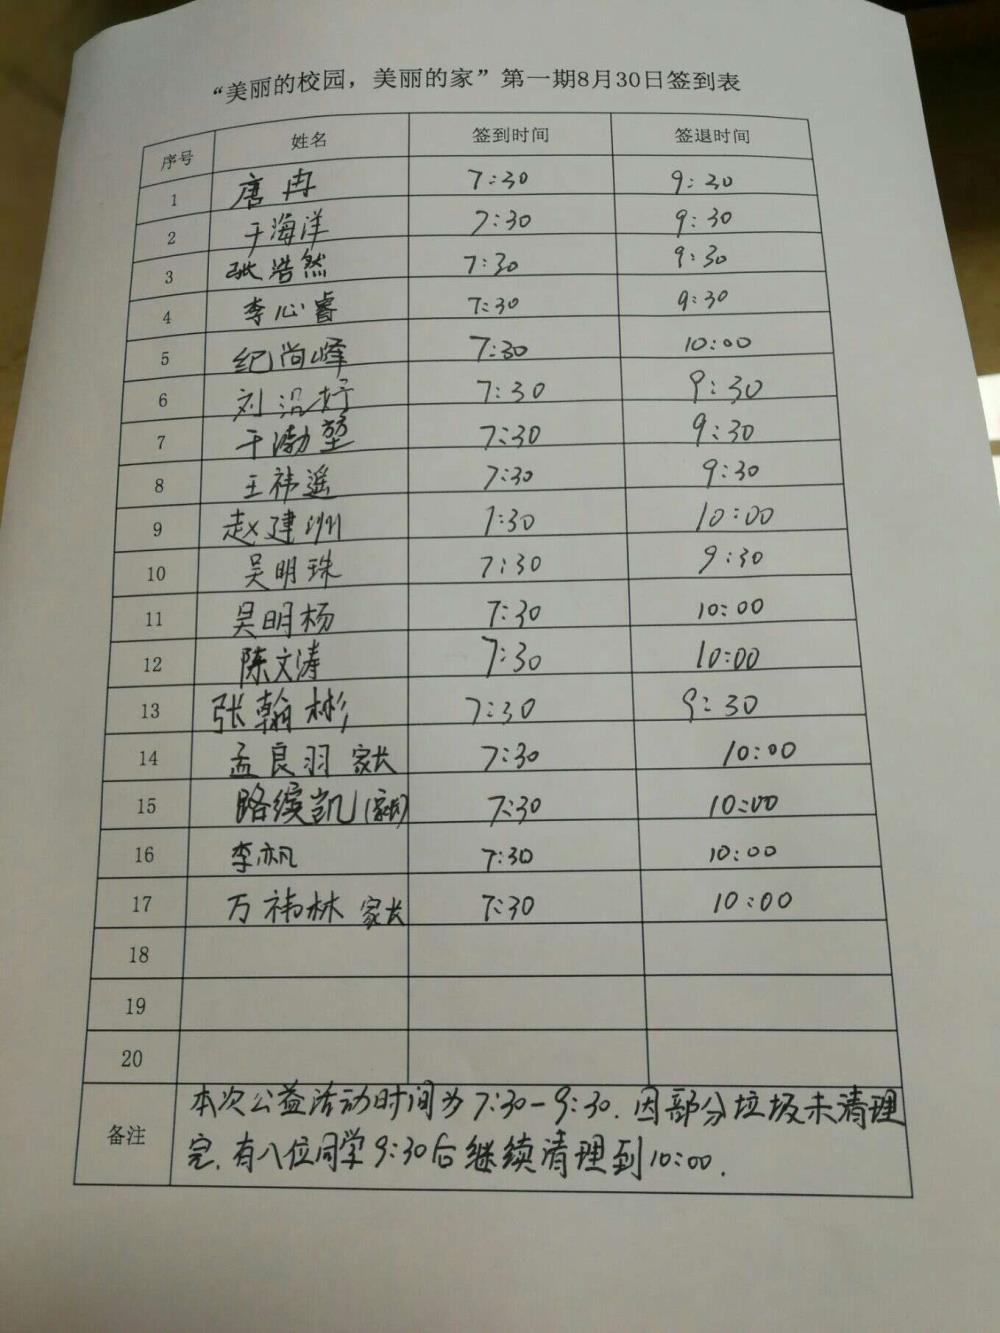 “美丽的校园，美丽的家”第一期8月30日签到表
序号 姓名 签到时间 签退时间
1 唐冉 7:30 9:30
2 于海洋 7:30 9:30
3 张浩然 7:30 9:30
4 李心睿 7:30 9:30
5 纪尚峰 7:30 10:00
6 刘沿妤 7:30 9:30
7 于渤堃 7:30 9:30
8 王祎遥 7:30 9:30
9 赵建洲 7:30 10:00
10 吴明珠 7:30 9:30
11 吴明杨 7:30 10:00
12 陈文涛 7:30 10:00
13 张翰彬 7:30 9:30
14 孟良羽 家长 7:30 10:00
15 路缤凯(家长) 7:30 10:00
16 李帆 7:30 10:00
17 万祎林 家长 7:30 10:00
18
19
20
备注 本次公益活动时间为7:30-9:30.因部分垃圾未清理
完.有八位同学9:30后继续清理到10:00.